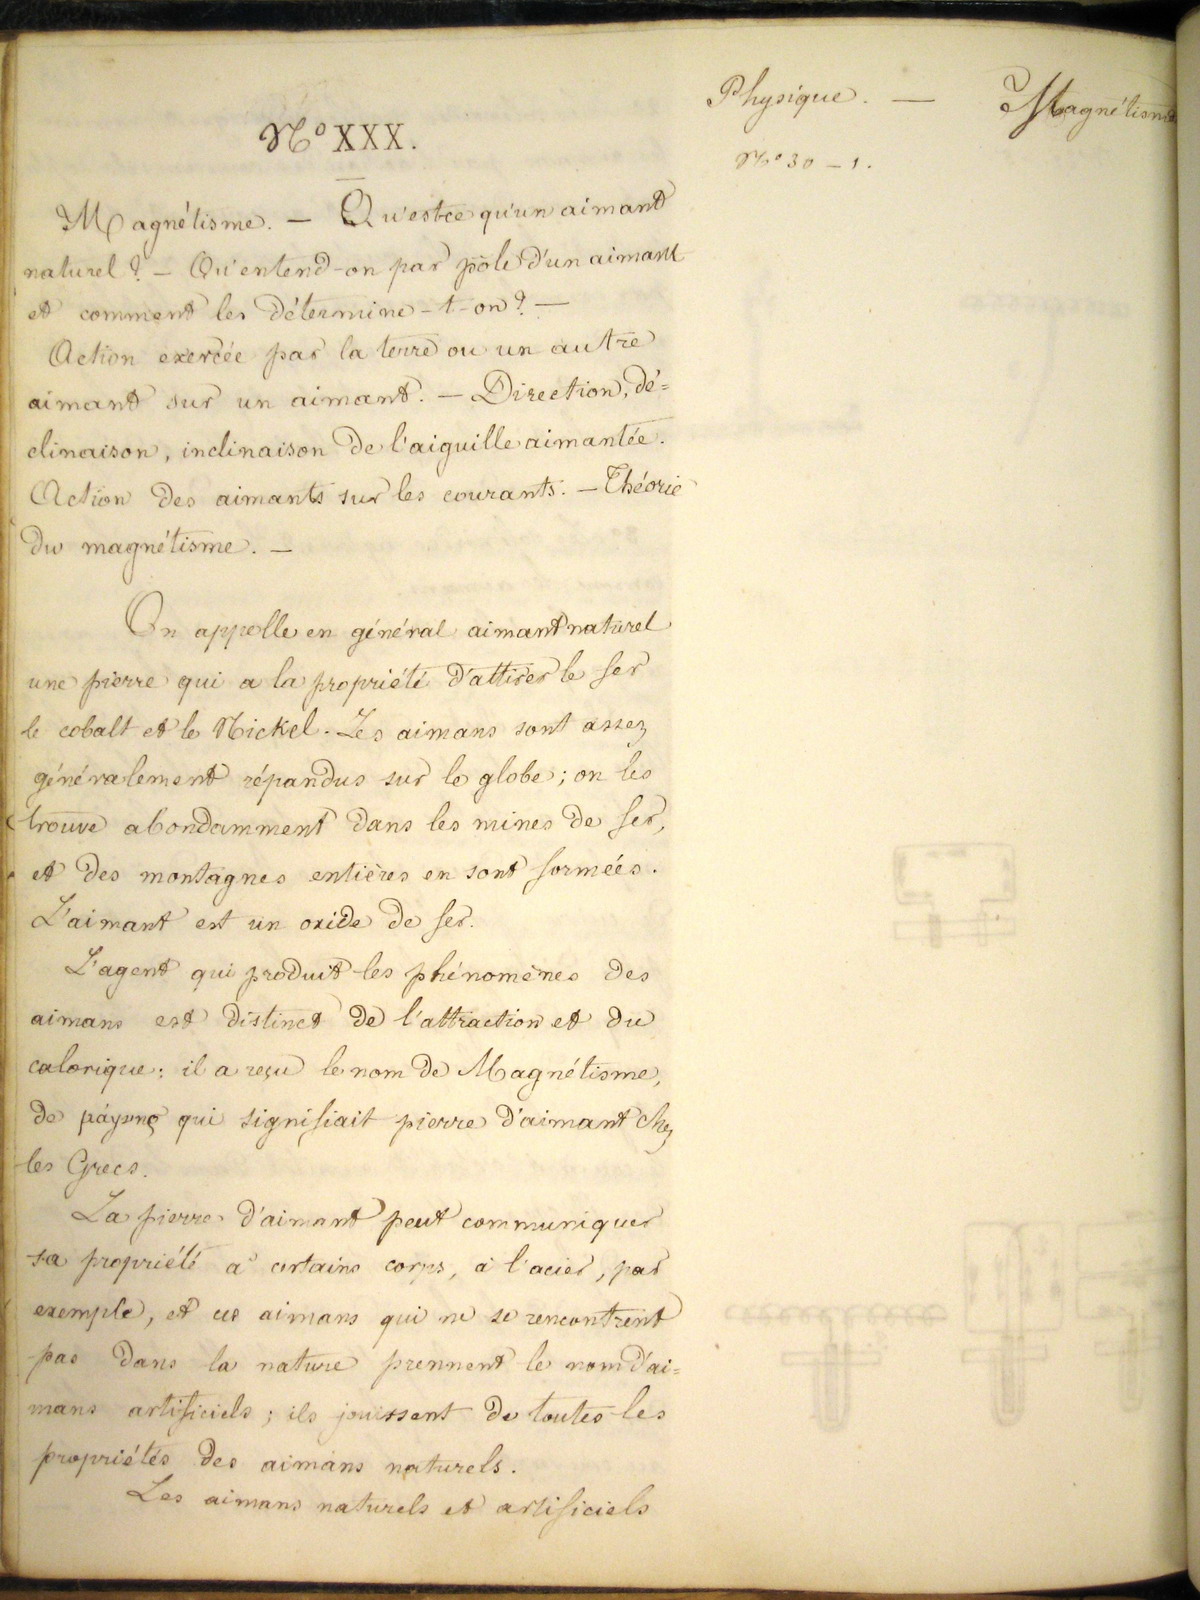 Physique. — Magnétisme
N° 30 – 1.
N° XXX.
Magnétisme. — Qu'est-ce qu'un aimant
naturel ? — Qu'entend-on par pôle d'un aimant
et comment les détermine-t-on ? —
Action exercée par la terre ou un autre
aimant sur un aimant. — Direction, dé=
clinaison, inclinaison de l'aiguille aimantée.
Action des aimants sur les courants. — Théorie
du magnétisme. —
On appelle en général aimant naturel
une pierre qui a la propriété d'attirer le fer
le cobalt et le Nickel. Les aimans sont assez
généralement répandus sur le globe ; on les
trouve abondamment dans les mines de fer,
et des montagnes entières en sont formées.
L'aimant est un oxide de fer.
L'agent qui produit les phénomènes des
aimans est distinct de l'attraction et du
calorique : il a reçu le nom de Magnétisme,
de μάγνης qui signifiait pierre d'aimant chez
les Grecs.
La pierre d'aimant peut communiquer
sa propriété à certains corps, à l'acier, par
exemple, et ces aimans qui ne se rencontrent
pas dans la nature prennent le nom d'ai=
mans artificiels ; ils jouissent de toutes les
propriétés des aimans naturels.
Les aimans naturels et artificiels